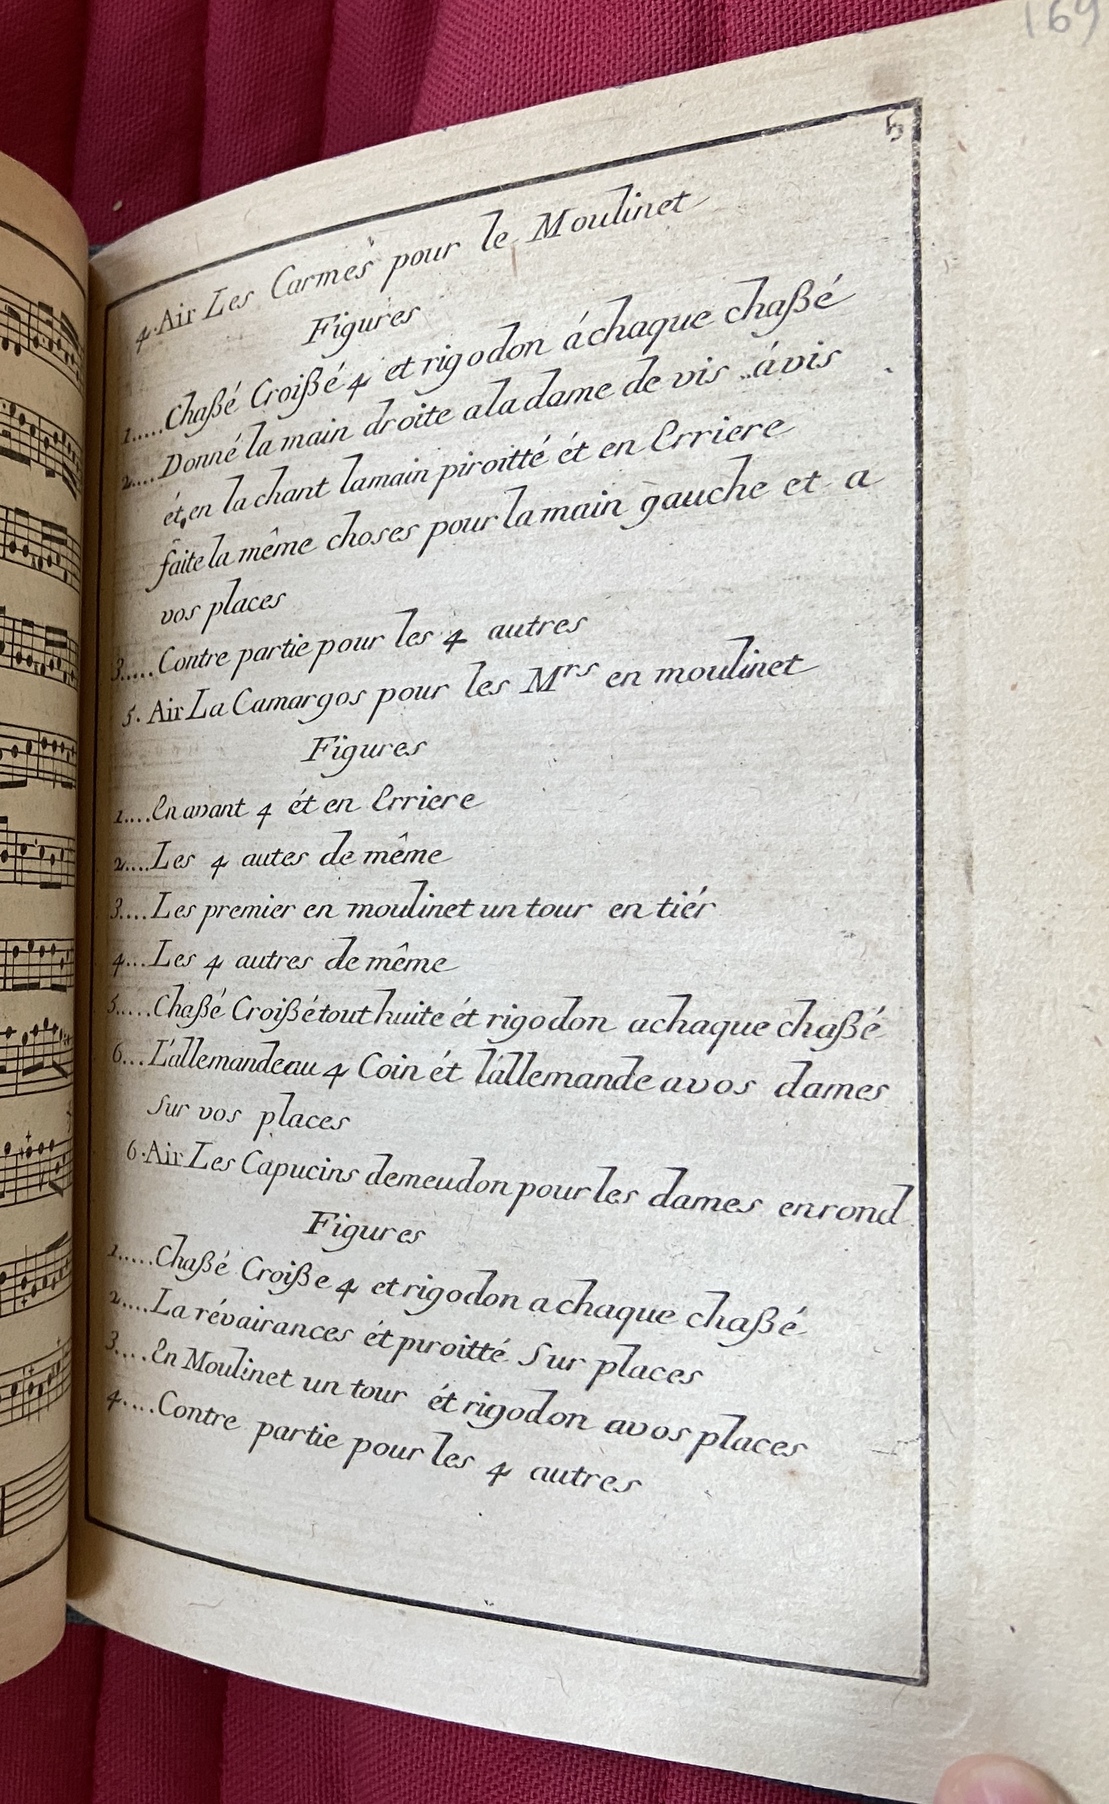 169
5
4. Air Les Carmes pour le Moulinet
Figures
1.....Chaßé Croißé 4 et rigodon áchaque chaßé
2....Donné la main droite aladame de vis ávis
ét,en la chant lamain piroitté ét en Erriere
faite la même choses pour la main gauche et a
vos places
3.....Contre partie pour les 4 autres
5. Air La Camargos pour les Mrs en moulinet
Figures
1....En avant 4 ét en Erriere
2....Les 4 autes de même
3....Les premier en moulinet un tour en tiér
4...Les 4 autres de même
5.....Chaßé Croißé tout huite ét rigodon achaque chaßé
6...L'allemande au 4 Coin ét l'allemande avos dames
Sur vos places
6. Air Les Capucins demeudon pour les dames enrond
Figures
1.....Chaßé Croiße 4 et rigodon achaque chaßé
2....La révairances ét piroitté Sur places
3....En Moulinet un tour ét rigodon avos places
4....Contre partie pour les 4 autres